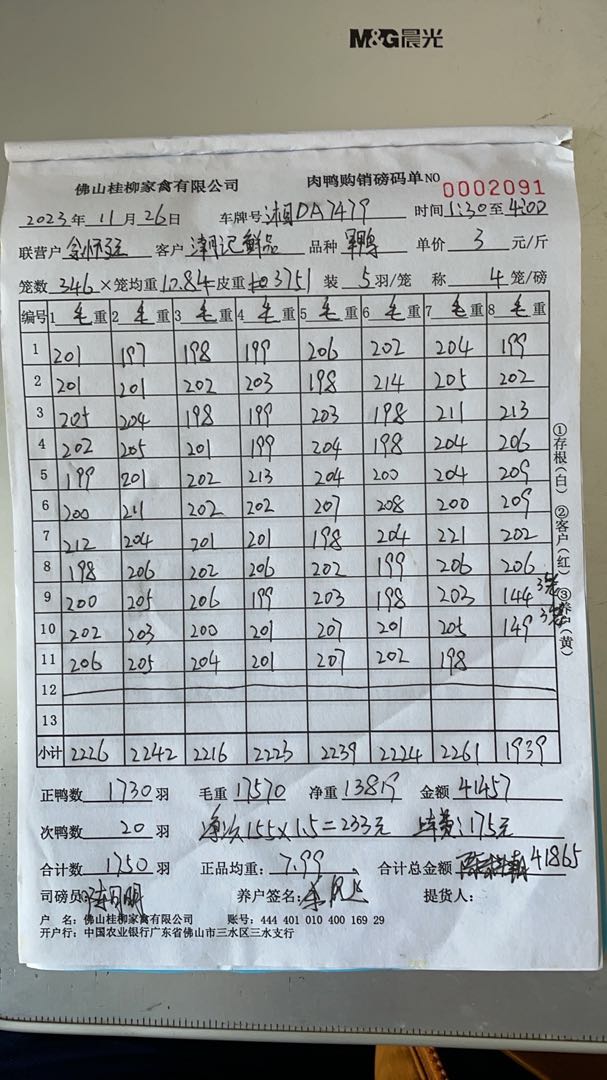 M&G晨光
佛山桂柳家禽有限公司 肉鸭购销磅码单 NO 0002091
2023年 11月 26日 车牌号 湘DA7479 时间 1:30 至 4:00
联营户 客户 潮记鲜品 品种 单价 3 元/斤
笼数 346 × 笼均重 10.84 皮重 3751 装 5 羽/笼 称 4 笼/磅
编号 1 毛重 2 毛重 3 毛重 4 毛重 5 毛重 6 毛重 7 毛重 8 毛重
1 201 197 198 199 206 202 204 199
2 201 201 202 203 198 214 205 202
3 205 204 198 199 203 198 211 213
4 202 205 201 199 204 198 204 206
5 199 201 202 213 204 200 204 209
6 200 211 202 202 207 208 200 209
7 212 204 201 201 198 204 221 202
8 198 206 202 206 202 199 206 206
9 200 205 206 199 203 198 203 144
10 202 203 200 201 207 201 205 149
11 206 205 204 201 207 202 198
12
13
小计 2226 2242 2216 2223 2239 2224 2261 1939
①存根(白) ②客户(红) ③养户(黄)
正鸭数 1730 羽 毛重 17570 净重 13819 金额 41457
次鸭数 20 羽 155×1.5=233元 175元
合计数 1750 羽 正品均重: 7.99 合计总金额 41865
司磅员: 养户签名: 提货人:
户 名: 佛山桂柳家禽有限公司 账号: 444 401 010 400 169 29
开户行: 中国农业银行广东省佛山市三水区三水支行